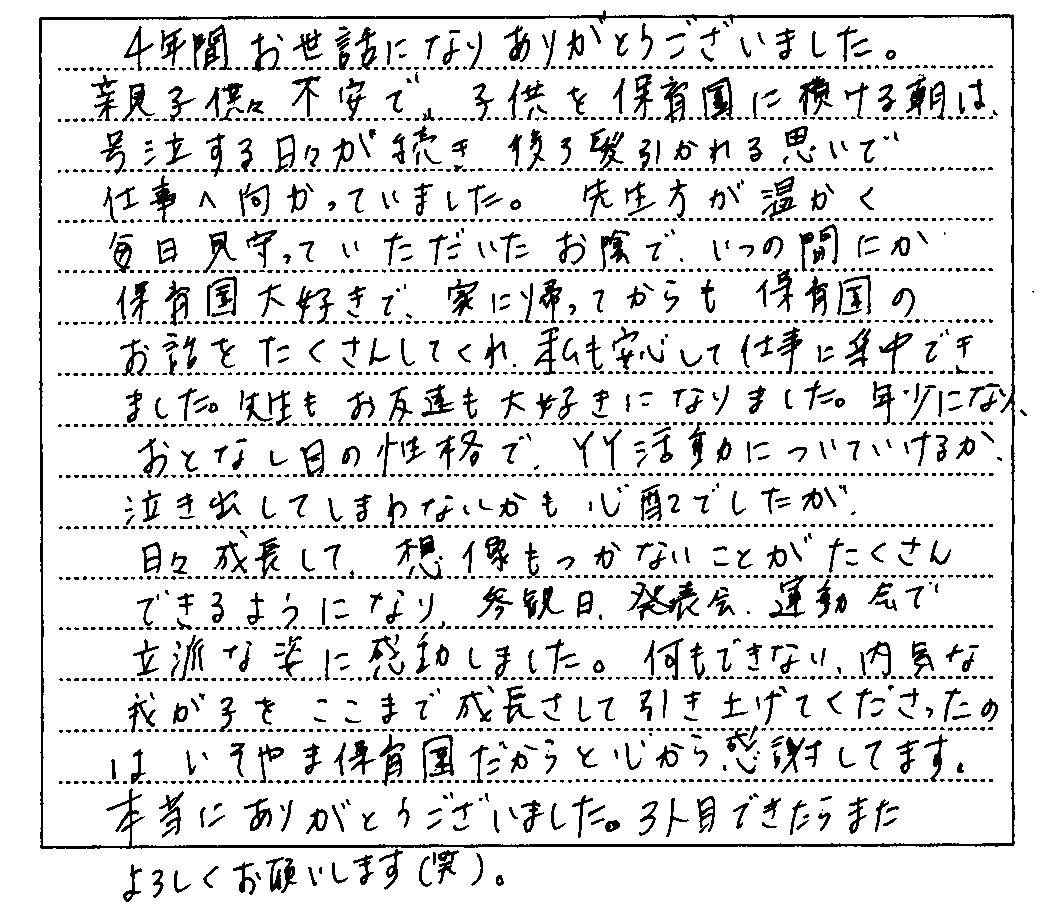 4年間お世話になりありがとうございました。
親見子供々不安で、子供を保育園に預ける朝は、
号泣する日々が続き後ろ髪引かれる思いで
仕事へ向かっていました。先生方が温かく
毎日見守っていただいたお陰で、いつの間にか
保育園大好きで、家に帰ってからも保育園の
お話をたくさんしてくれ、私も安心して仕事に集中でき
ました。先生もお友達も大好きになりました。年少になり、
おとなし目の性格で、YY活動についていけるか、
泣き出してしまわないかも心配でしたが、
日々成長して、想像もつかないことがたくさん
できるようになり、参観日、発表会、運動会で
立派な姿に感動しました。何もできない、内気な
我が子をここまで成長さして引き上げてくださったの
は、いそやま保育園だからと心から感謝してます。
本当にありがとうございました。3人目できたらまた
よろしくお願いします(笑)。